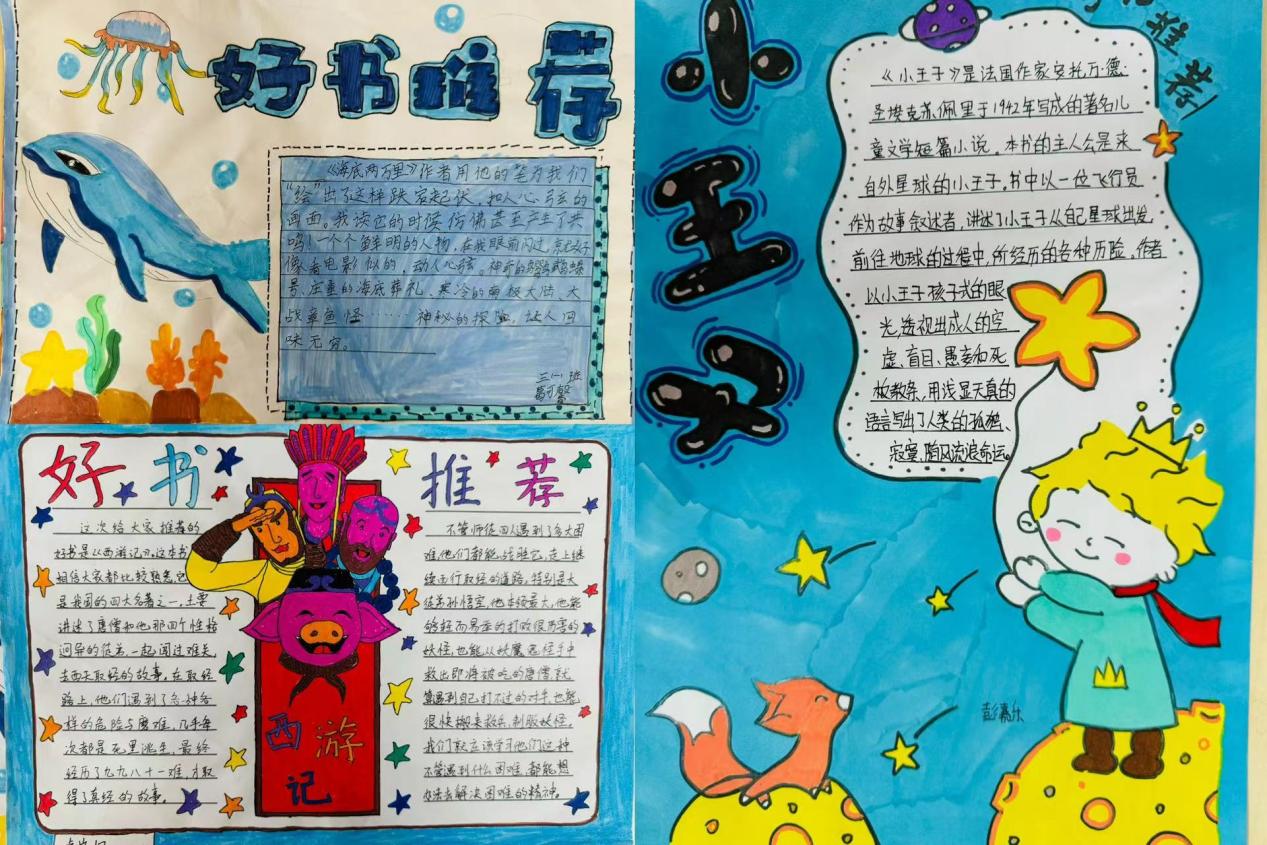 好书推荐
《海底两万里》作者用他的笔为我们
“绘”出了这样跌宕起伏、扣人心弦的
画面。我读它的时候仿佛甚至产生了共
鸣！一个个鲜明的人物，在我眼前闪过，就好
像看电影似的，动人心弦。神奇的
景、庄重的海底葬礼、寒冷的南极大陆、大
战章鱼怪……神秘的探险，让人回
味无穷。
三（一）班
好书
推荐
这次给大家推荐的
好书是《西游记》。这本书
相信大家都比较熟悉，它
是我国的四大名著之一，主要
讲述了唐僧和他那四个性格
迥异的徒弟，一起闯过难关，
去西天取经的故事，在取经
路上，他们遇到了各种各
样的危险与磨难，几乎每
次都是死里逃生，最终
经历了九九八十一难，才取
得了真经的故事。
西游
记
不管师徒四人遇到了多大困
难，他们都能，走上继
续西行取经的道路，特别是大
徒弟孙悟空，他本领最大，他能
够轻而易举的打败很厉害的
妖怪，也能从妖魔鬼怪手中
救出即将被吃的唐僧，就
算遇到自己打不过的对手，也能
很快搬来救兵，制服妖怪，
我们就应该学习他们这种
不管遇到什么困难，都能想
办法去解决困难的精神。
小王子
推荐
《小王子》是法国作家安托万·德·
圣埃克苏佩里于1942年写成的著名儿
童文学短篇小说。本书的主人公是来
自外星球的小王子。书中以一位飞行员
作为故事叙述者，讲述了小王子从自己星球出发，
前往地球的过程中，所经历的各种历险。作者
以小王子孩子式的眼
光，透视出成人的空
虚、盲目、愚妄和死
板教条，用浅显天真的
语言写出了人类的孤独
寂寞、随风流浪命运。